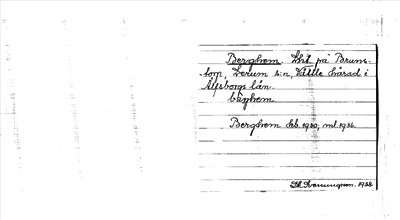 Berghem. Lht på Bruns-
torp, Lerum s:n, Vättle härad i
Älfsborgs län.
bærghem.
Berghem krb. 1930, ml. 1936.
1938